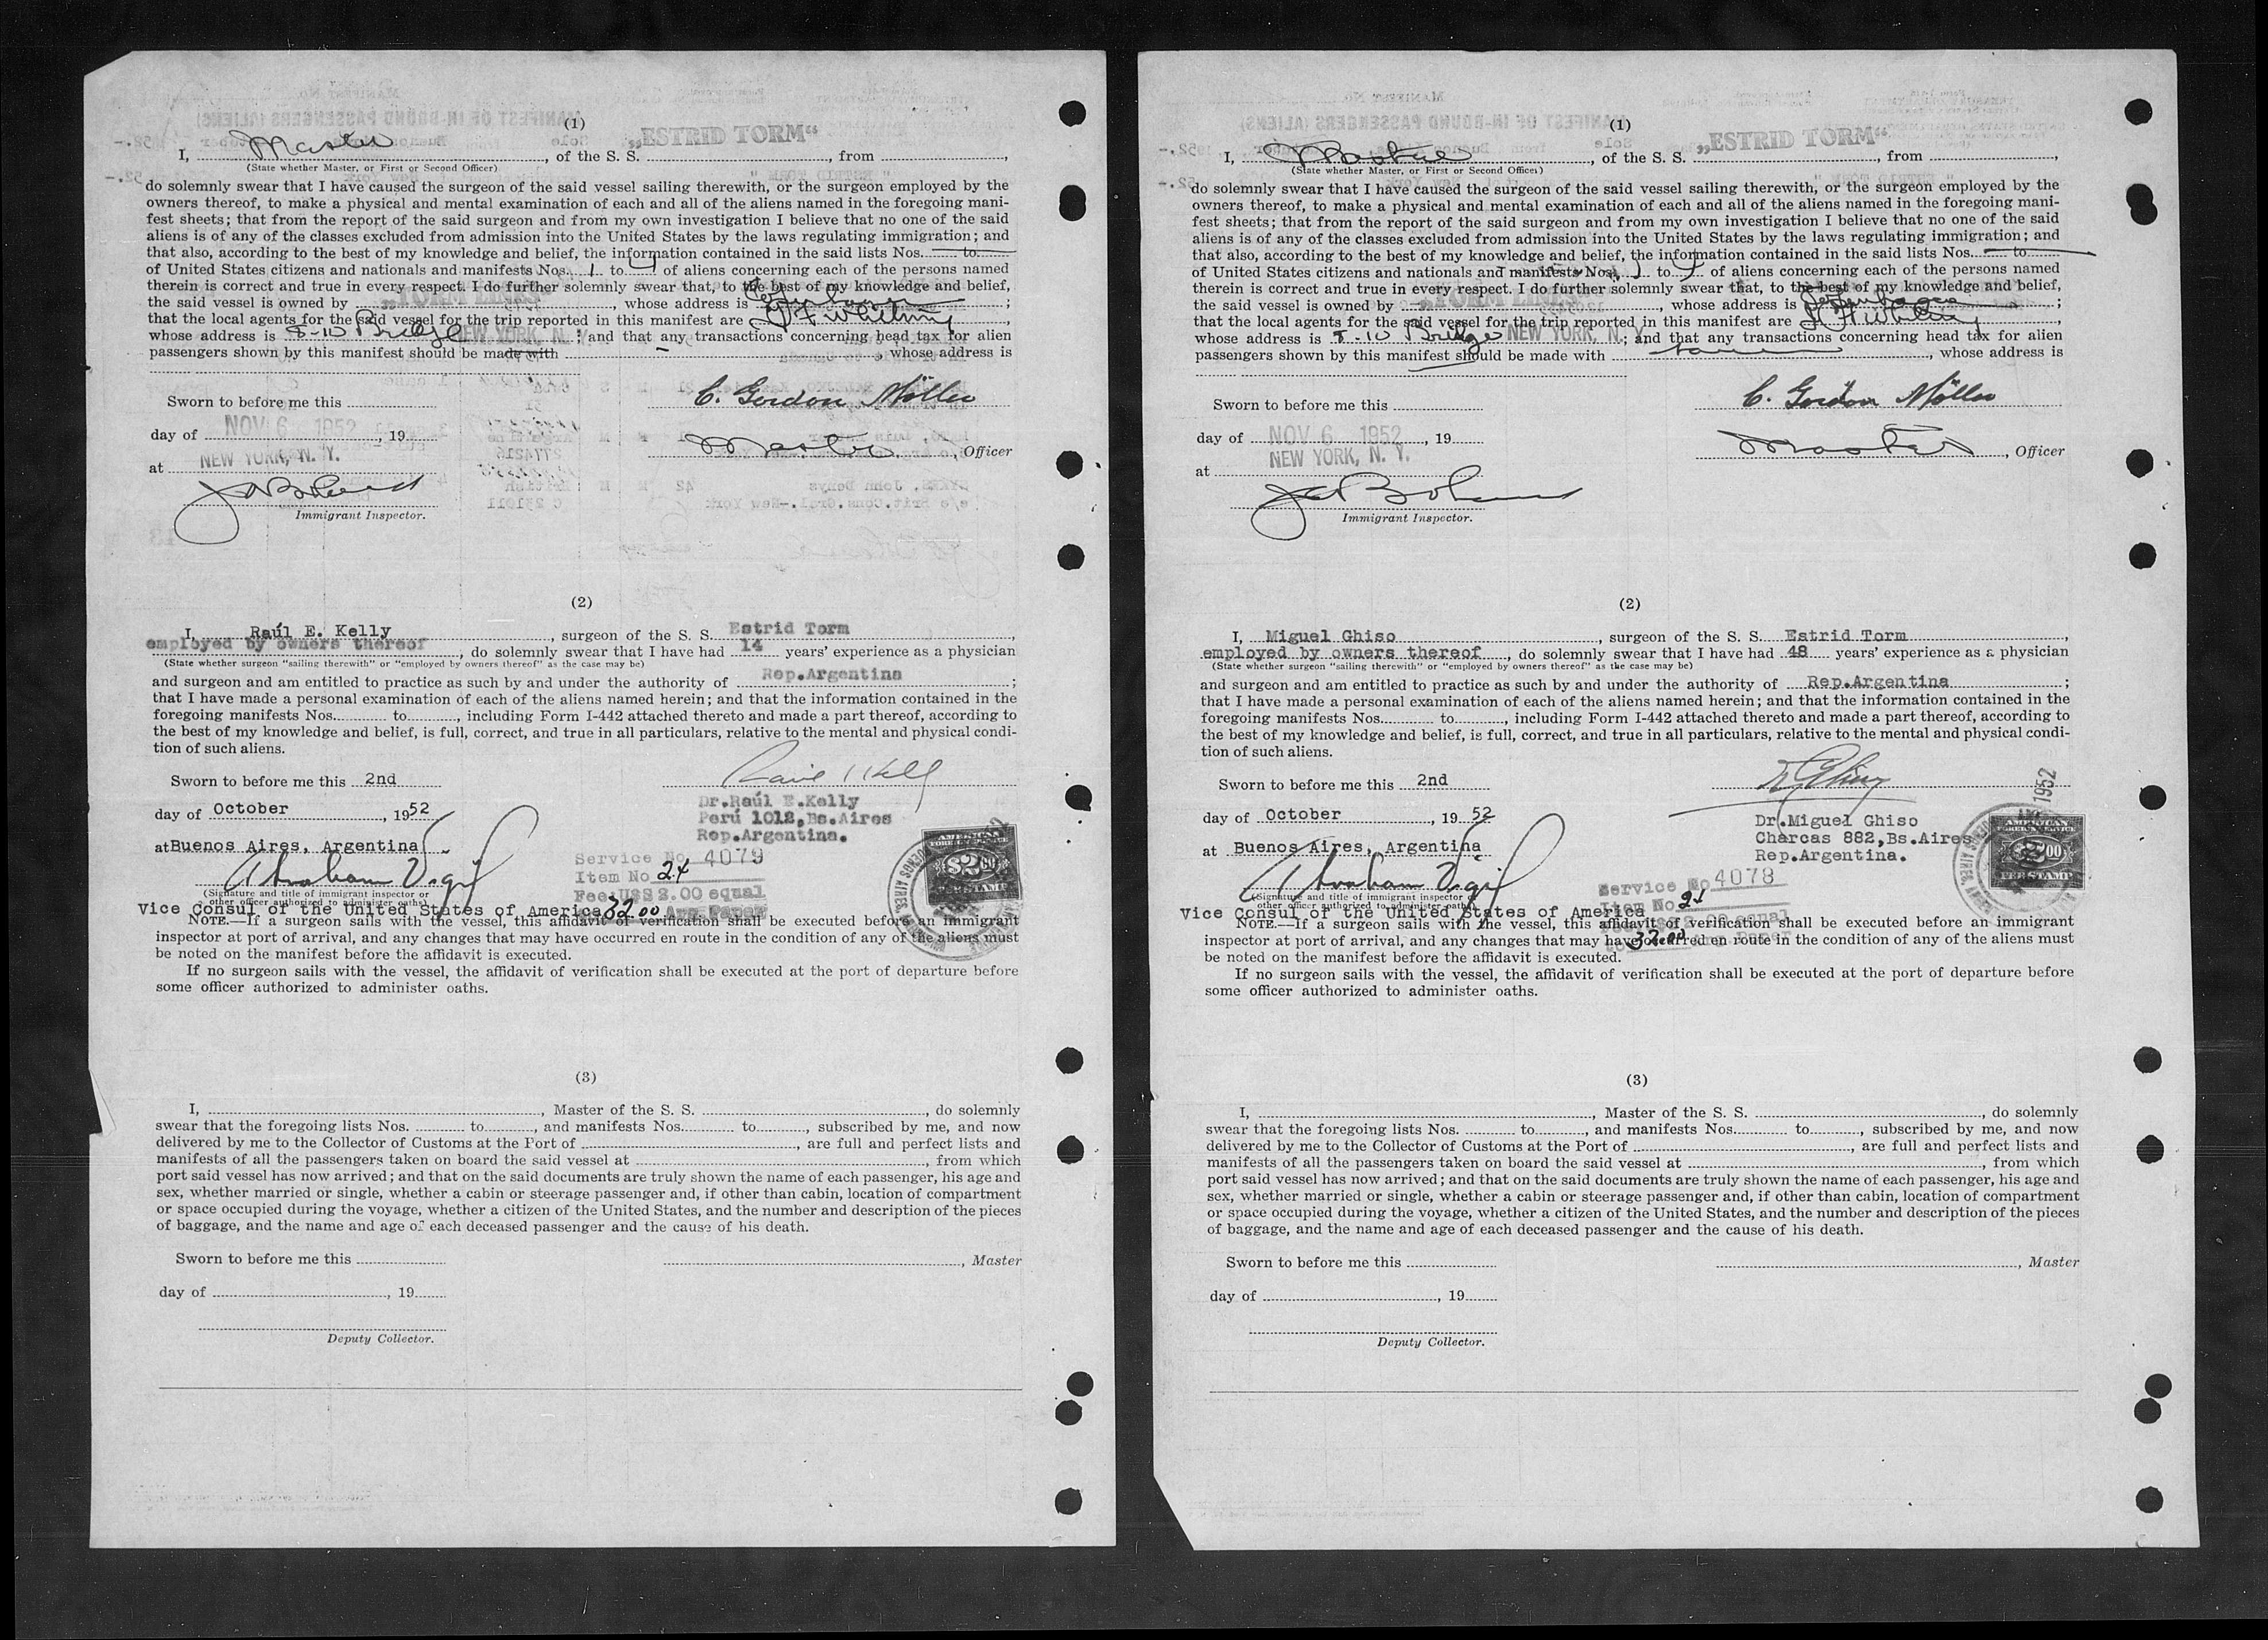 (1)
I, Master, of the S. S. „ESTRID TORM“, from
(State whether Master, or First or Second Officer)
do solemnly swear that I have caused the surgeon of the said vessel sailing therewith, or the surgeon employed by the
owners thereof, to make a physical and mental examination of each and all of the aliens named in the foregoing mani-
fest sheets; that from the report of the said surgeon and from my own investigation I believe that no one of the said
aliens is of any of the classes excluded from admission into the United States by the laws regulating immigration; and
that also, according to the best of my knowledge and belief, the information contained in the said lists Nos. — to —
of United States citizens and nationals and manifests Nos. 1 to 4 of aliens concerning each of the persons named
therein is correct and true in every respect. I do further solemnly swear that, to the best of my knowledge and belief,
the said vessel is owned by „TORM LINES“, whose address is Copenhagen;
that the local agents for the said vessel for the trip reported in this manifest are F Whitney,
whose address is 8-10 Bridge NEW YORK, N. Y.; and that any transactions concerning head tax for alien
passengers shown by this manifest should be made with —, whose address is
Sworn to before me this
C. Gordon Möller
day of NOV 6 1952, 19
Master, Officer
at NEW YORK, N. Y.
Immigrant Inspector.
(2)
I, Raúl E. Kelly, surgeon of the S. S. Estrid Torm,
employed by owners thereof, do solemnly swear that I have had 14 years' experience as a physician
(State whether surgeon "sailing therewith" or "employed by owners thereof" as the case may be)
and surgeon and am entitled to practice as such by and under the authority of Rep.Argentina;
that I have made a personal examination of each of the aliens named herein; and that the information contained in the
foregoing manifests Nos. to, including Form I-442 attached thereto and made a part thereof, according to
the best of my knowledge and belief, is full, correct, and true in all particulars, relative to the mental and physical condi-
tion of such aliens.
Sworn to before me this 2nd
day of October, 1952
Dr.Raúl E.Kelly
Perú 1012,Bs.Aires
Rep.Argentina.
at Buenos Aires, Argentina
Abraham Vigil
(Signature and title of immigrant inspector or
other officer authorized to administer oaths)
Vice Consul of the United States of America
Service No 4079
Item No 24
Fee:U$S 2.00 equal
32.00 Arg. Paper
AMERICAN
FOREIGN SERVICE
$2.00
FEE STAMP
NOTE.—If a surgeon sails with the vessel, this affidavit of verification shall be executed before an immigrant
inspector at port of arrival, and any changes that may have occurred en route in the condition of any of the aliens must
be noted on the manifest before the affidavit is executed.
If no surgeon sails with the vessel, the affidavit of verification shall be executed at the port of departure before
some officer authorized to administer oaths.
(3)
I, , Master of the S. S. , do solemnly
swear that the foregoing lists Nos. to, and manifests Nos. to, subscribed by me, and now
delivered by me to the Collector of Customs at the Port of , are full and perfect lists and
manifests of all the passengers taken on board the said vessel at , from which
port said vessel has now arrived; and that on the said documents are truly shown the name of each passenger, his age and
sex, whether married or single, whether a cabin or steerage passenger and, if other than cabin, location of compartment
or space occupied during the voyage, whether a citizen of the United States, and the number and description of the pieces
of baggage, and the name and age of each deceased passenger and the cause of his death.
Sworn to before me this
, Master
day of , 19
Deputy Collector.
(1)
I, Master, of the S. S. „ESTRID TORM“, from
(State whether Master, or First or Second Officer)
do solemnly swear that I have caused the surgeon of the said vessel sailing therewith, or the surgeon employed by the
owners thereof, to make a physical and mental examination of each and all of the aliens named in the foregoing mani-
fest sheets; that from the report of the said surgeon and from my own investigation I believe that no one of the said
aliens is of any of the classes excluded from admission into the United States by the laws regulating immigration; and
that also, according to the best of my knowledge and belief, the information contained in the said lists Nos. — to —
of United States citizens and nationals and manifests Nos. 1 to 4 of aliens concerning each of the persons named
therein is correct and true in every respect. I do further solemnly swear that, to the best of my knowledge and belief,
the said vessel is owned by „TORM LINES“, whose address is Copenhagen;
that the local agents for the said vessel for the trip reported in this manifest are F Whitney,
whose address is 8-10 Bridge NEW YORK, N. Y.; and that any transactions concerning head tax for alien
passengers shown by this manifest should be made with , whose address is
Sworn to before me this
C. Gordon Möller
day of NOV 6 1952, 19
Master, Officer
at NEW YORK, N. Y.
Immigrant Inspector.
(2)
I, Miguel Ghiso, surgeon of the S. S. Estrid Torm,
employed by owners thereof, do solemnly swear that I have had 48 years' experience as a physician
(State whether surgeon "sailing therewith" or "employed by owners thereof" as the case may be)
and surgeon and am entitled to practice as such by and under the authority of Rep.Argentina;
that I have made a personal examination of each of the aliens named herein; and that the information contained in the
foregoing manifests Nos. to, including Form I-442 attached thereto and made a part thereof, according to
the best of my knowledge and belief, is full, correct, and true in all particulars, relative to the mental and physical condi-
tion of such aliens.
Sworn to before me this 2nd
day of October, 1952
Dr.Miguel Ghiso
Charcas 882,Bs.Aires
Rep.Argentina.
1952
at Buenos Aires, Argentina
Abraham Vigil
(Signature and title of immigrant inspector or
other officer authorized to administer oaths)
Vice Consul of the United States of America
Service No 4078
Item No 24
32.00
AMERICAN
FOREIGN SERVICE
FEE STAMP
NOTE.—If a surgeon sails with the vessel, this affidavit of verification shall be executed before an immigrant
inspector at port of arrival, and any changes that may have occurred en route in the condition of any of the aliens must
be noted on the manifest before the affidavit is executed.
If no surgeon sails with the vessel, the affidavit of verification shall be executed at the port of departure before
some officer authorized to administer oaths.
(3)
I, , Master of the S. S. , do solemnly
swear that the foregoing lists Nos. to, and manifests Nos. to, subscribed by me, and now
delivered by me to the Collector of Customs at the Port of , are full and perfect lists and
manifests of all the passengers taken on board the said vessel at , from which
port said vessel has now arrived; and that on the said documents are truly shown the name of each passenger, his age and
sex, whether married or single, whether a cabin or steerage passenger and, if other than cabin, location of compartment
or space occupied during the voyage, whether a citizen of the United States, and the number and description of the pieces
of baggage, and the name and age of each deceased passenger and the cause of his death.
Sworn to before me this
, Master
day of , 19
Deputy Collector.